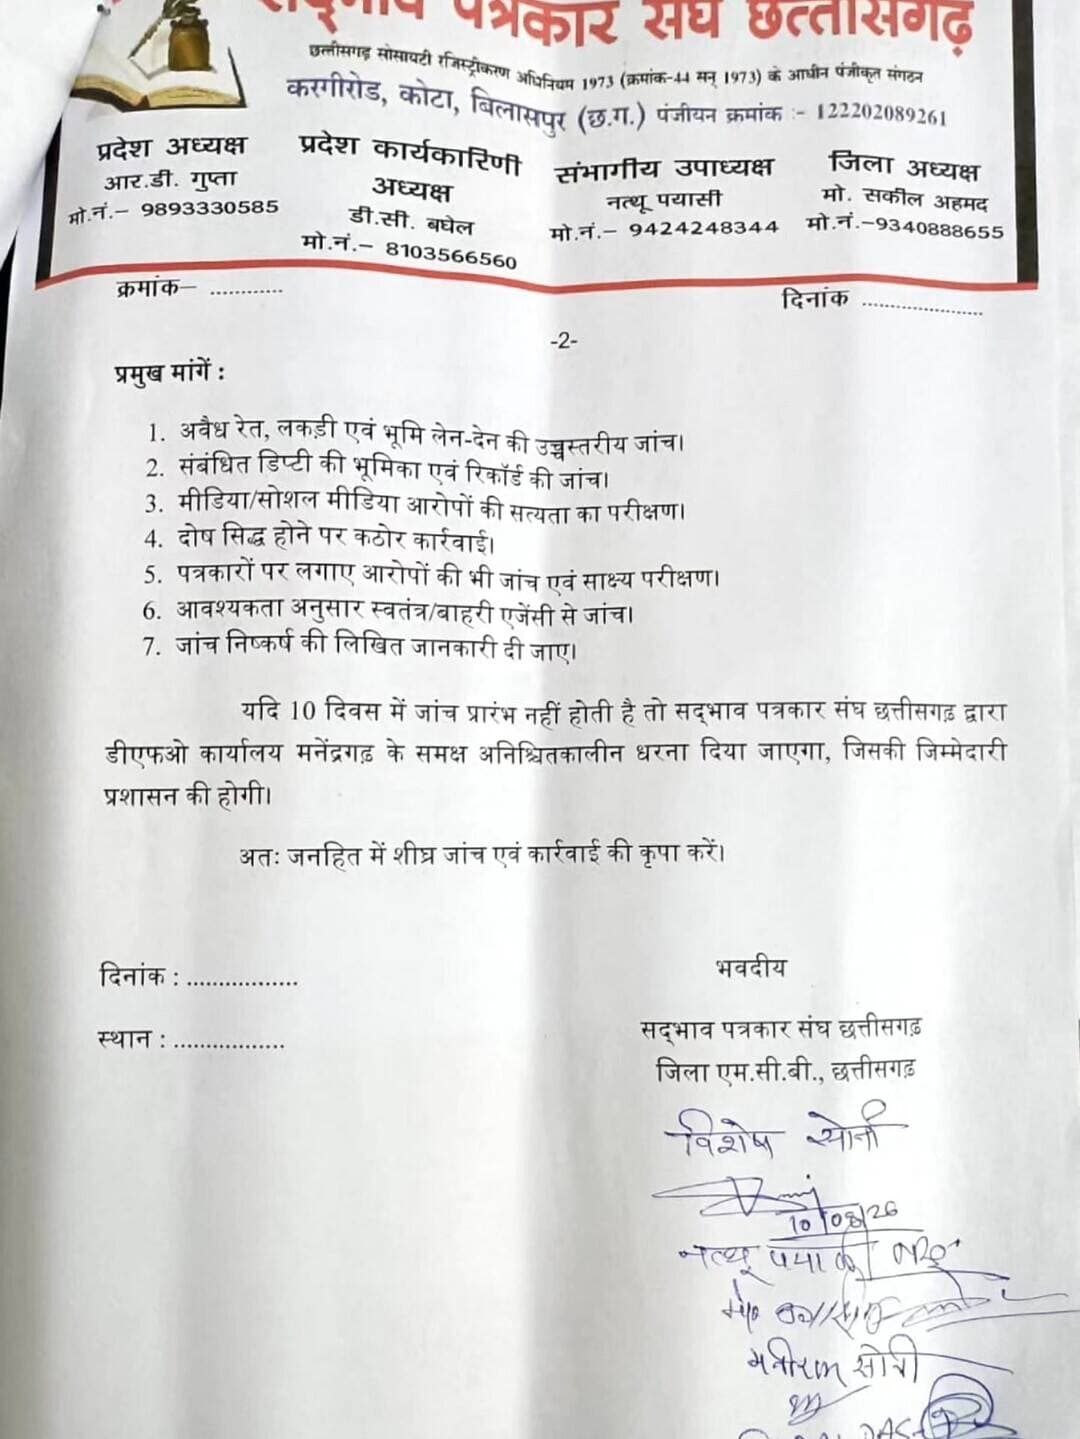 सद्भाव पत्रकार संघ छत्तीसगढ़
छत्तीसगढ़ सोसायटी रजिस्ट्रीकरण अधिनियम 1973 (क्रमांक-44 सन् 1973) के आधीन पंजीकृत संगठन
करगीरोड, कोटा, बिलासपुर (छ.ग.) पंजीयन क्रमांक :- 122202089261
प्रदेश अध्यक्ष
आर.डी. गुप्ता
मो.नं.– 9893330585
प्रदेश कार्यकारिणी
अध्यक्ष
डी.सी. बघेल
मो.नं.– 8103566560
संभागीय उपाध्यक्ष
नत्थू पयासी
मो.नं.– 9424248344
जिला अध्यक्ष
मो. सकील अहमद
मो.नं.–9340888655
क्रमांक– ............
दिनांक ....................
-2-
प्रमुख मांगें :
1. अवैध रेत, लकड़ी एवं भूमि लेन-देन की उच्चस्तरीय जांच।
2. संबंधित डिप्टी की भूमिका एवं रिकॉर्ड की जांच।
3. मीडिया/सोशल मीडिया आरोपों की सत्यता का परीक्षण।
4. दोष सिद्ध होने पर कठोर कार्रवाई।
5. पत्रकारों पर लगाए आरोपों की भी जांच एवं साक्ष्य परीक्षण।
6. आवश्यकता अनुसार स्वतंत्र/बाहरी एजेंसी से जांच।
7. जांच निष्कर्ष की लिखित जानकारी दी जाए।
यदि 10 दिवस में जांच प्रारंभ नहीं होती है तो सद्भाव पत्रकार संघ छत्तीसगढ़ द्वारा
डीएफओ कार्यालय मनेंद्रगढ़ के समक्ष अनिश्चितकालीन धरना दिया जाएगा, जिसकी जिम्मेदारी
प्रशासन की होगी।
अतः जनहित में शीघ्र जांच एवं कार्रवाई की कृपा करें।
दिनांक : ..................
भवदीय
स्थान : ..................
सद्भाव पत्रकार संघ छत्तीसगढ़
जिला एम.सी.बी., छत्तीसगढ़
विशेष सोनी
नत्थू
मनीराम सोनी